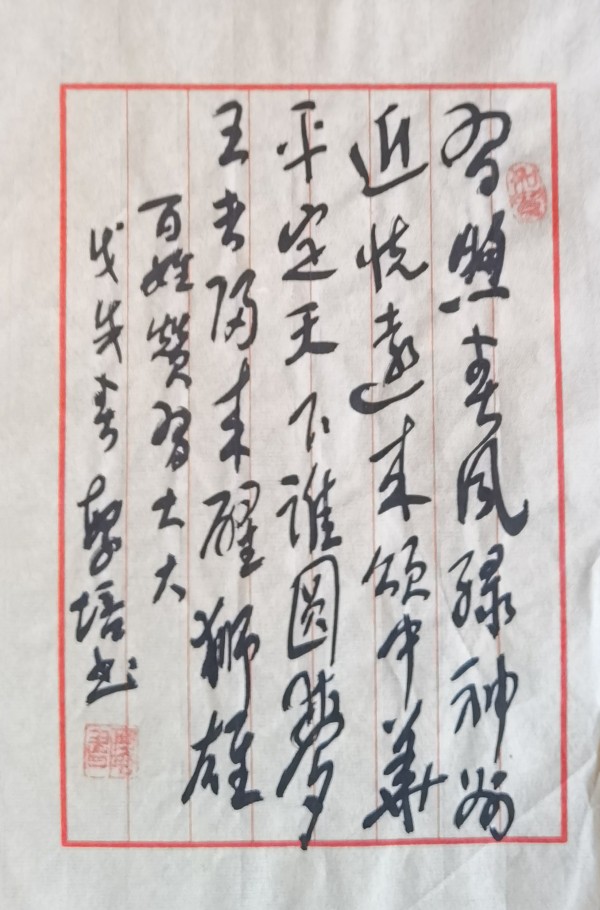 習照春风绿神州
近悦遠来颂中華
平定天下谁圆梦
王者归来醒狮雄
百姓赞習大大
戊戌春 培书